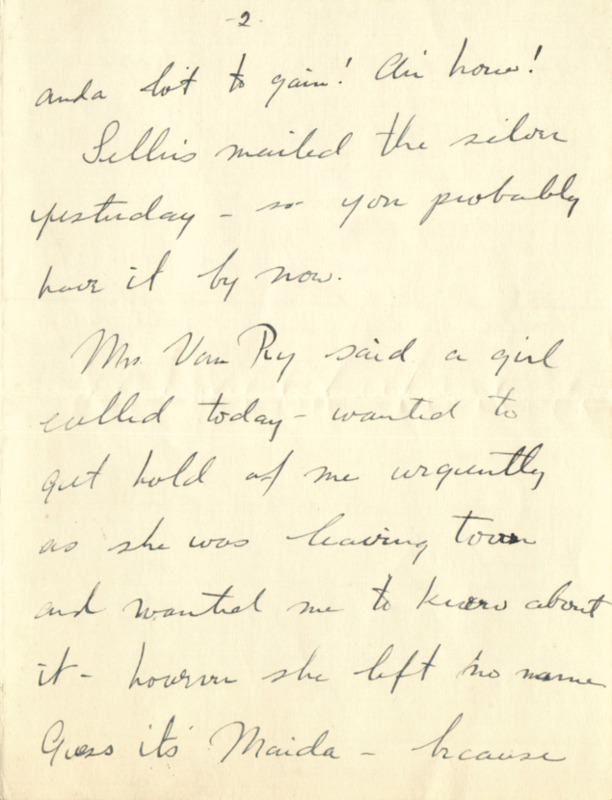 -2-
and a lot to gain! Au
Sellnis mailed the silver
yesterday - so you probably
have it by now.
Mrs. Van Pry said a girl
called today - wanted to
get hold of me urgently
as she was leaving town
and wanted me to know about
it - however she left no name
Guess its' Maida - because